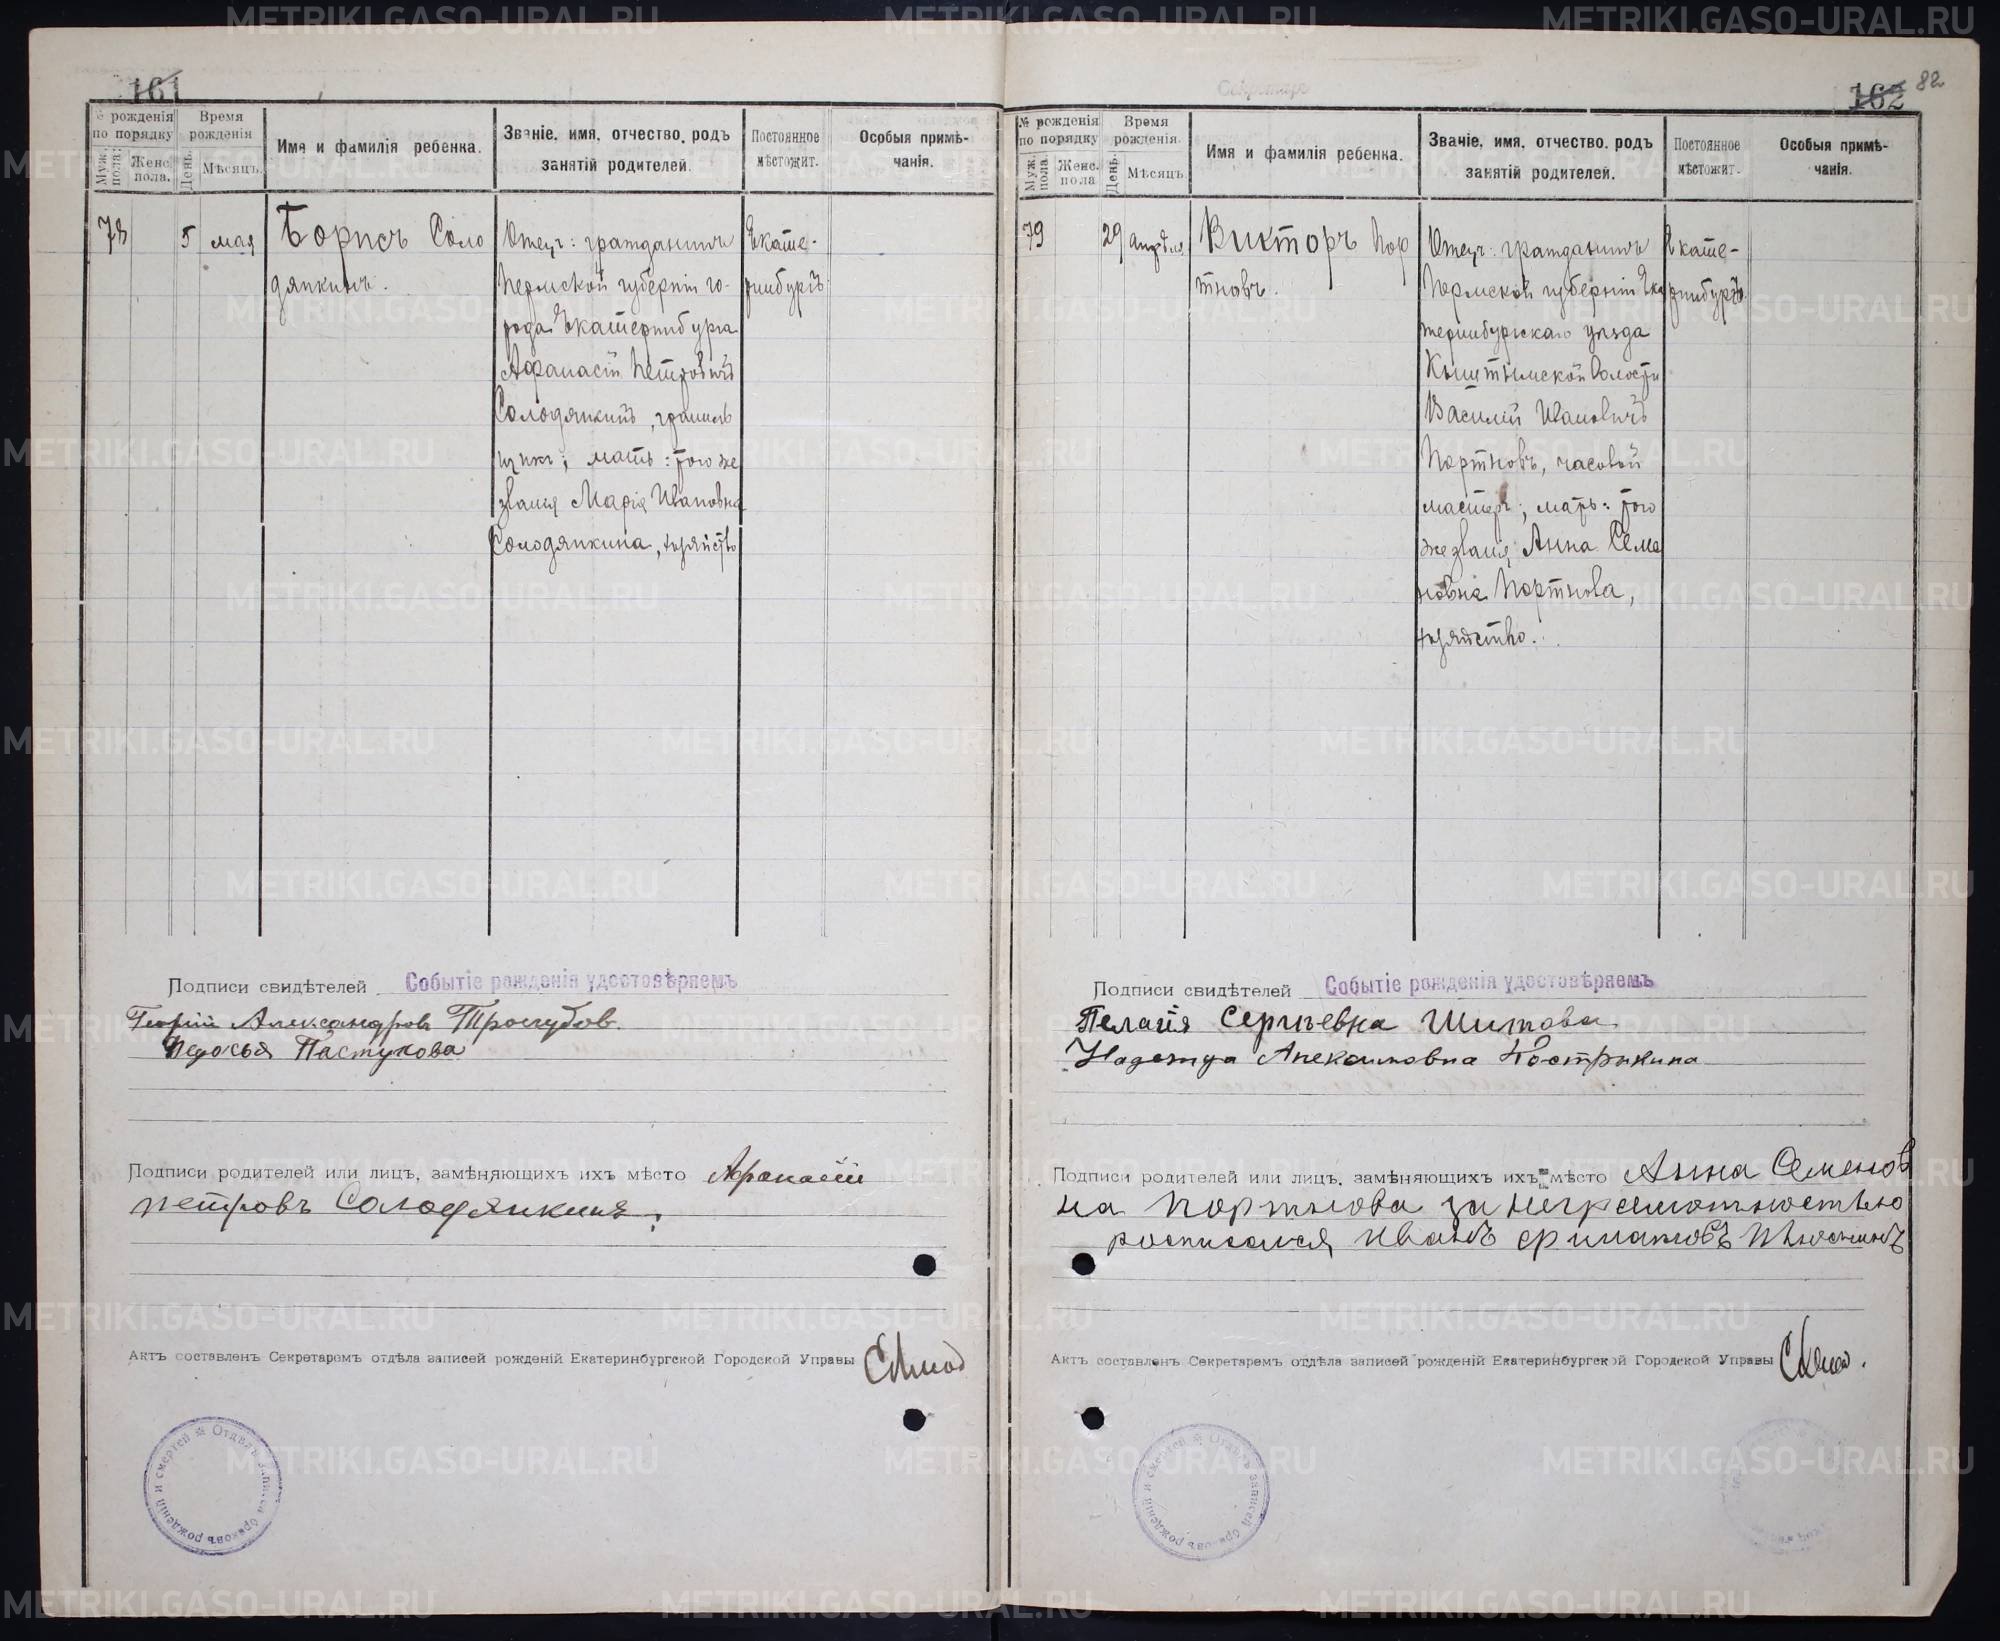 161
№ рожденія по порядку
Время рожденія
Имя и фамилія ребенка.
Званіе, имя, отчество, родъ занятій родителей.
Постоянное мѣстожит.
Особыя примѣчанія.
Муж. пола.
Женс. пола.
День.
Мѣсяцъ.
78
5 мая
Борисъ Соло
дянкинъ.
Отецъ: гражданинъ
Пермской губерніи го-
рода Екатеринбурга
Афанасій Петровичъ
Солодянкинъ, гранил
щикъ; мать: того же
званія Марія Ивановна
Солодянкина, хозяйство
Екате-
ринбургъ
Подписи свидѣтелей
Событіе рожденія удостовѣряемъ
Георгій Александровъ Трогубов
Пастухова
Подписи родителей или лицъ, замѣняющихъ ихъ мѣсто Афанасій
петровъ Солодянкинъ
Актъ составленъ Секретаремъ отдѣла записей рожденій Екатеринбургской Городской Управы
Отдѣлъ записей браковъ рожденій и смертей
162
82
Секретарь
№ рожденія по порядку
Время рожденія.
Имя и фамилія ребенка.
Званіе, имя, отчество, родъ занятій родителей.
Постоянное мѣстожит.
Особыя примѣчанія.
Муж. пола.
Женс. пола
День.
Мѣсяцъ.
79
29 апрѣля
Викторъ Пор
тновъ.
Отецъ: гражданинъ
Пермской губерніи Ека
теринбургскаго уѣзда
Кыштымской Волости
Василій Ивановичъ
Портновъ, часовой
мастеръ; мать: того
же званія Анна Семе
новна Портнова,
хозяйство.
Екате-
ринбургъ
Подписи свидѣтелей
Событіе рожденія удостовѣряемъ
Пелагія Сергѣевна Шитова
Надежда Алексимовна Кострикина
Подписи родителей или лицъ, замѣняющихъ ихъ мѣсто Анна Семенов
на Портнова за неграмотностью
росписался Иванъ
Актъ составленъ Секретаремъ отдѣла записей рожденій Екатеринбургской Городской Управы
Отдѣлъ записей браковъ рожденій и смертей
METRIKI.GASO-URAL.RU